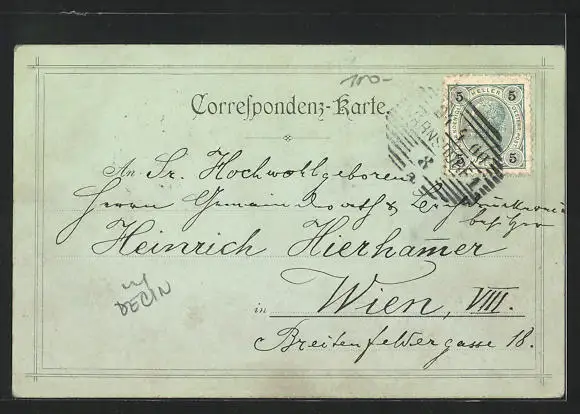 100-
Correspondenz-Karte.
5 HELLER 5
5 5
An Sr. Hochwohlgeboren
Herrn Gemeinderath &
Heinrich Hierhamer
in Wien, VIII.
Breitenfeldergasse 18.
DECIN